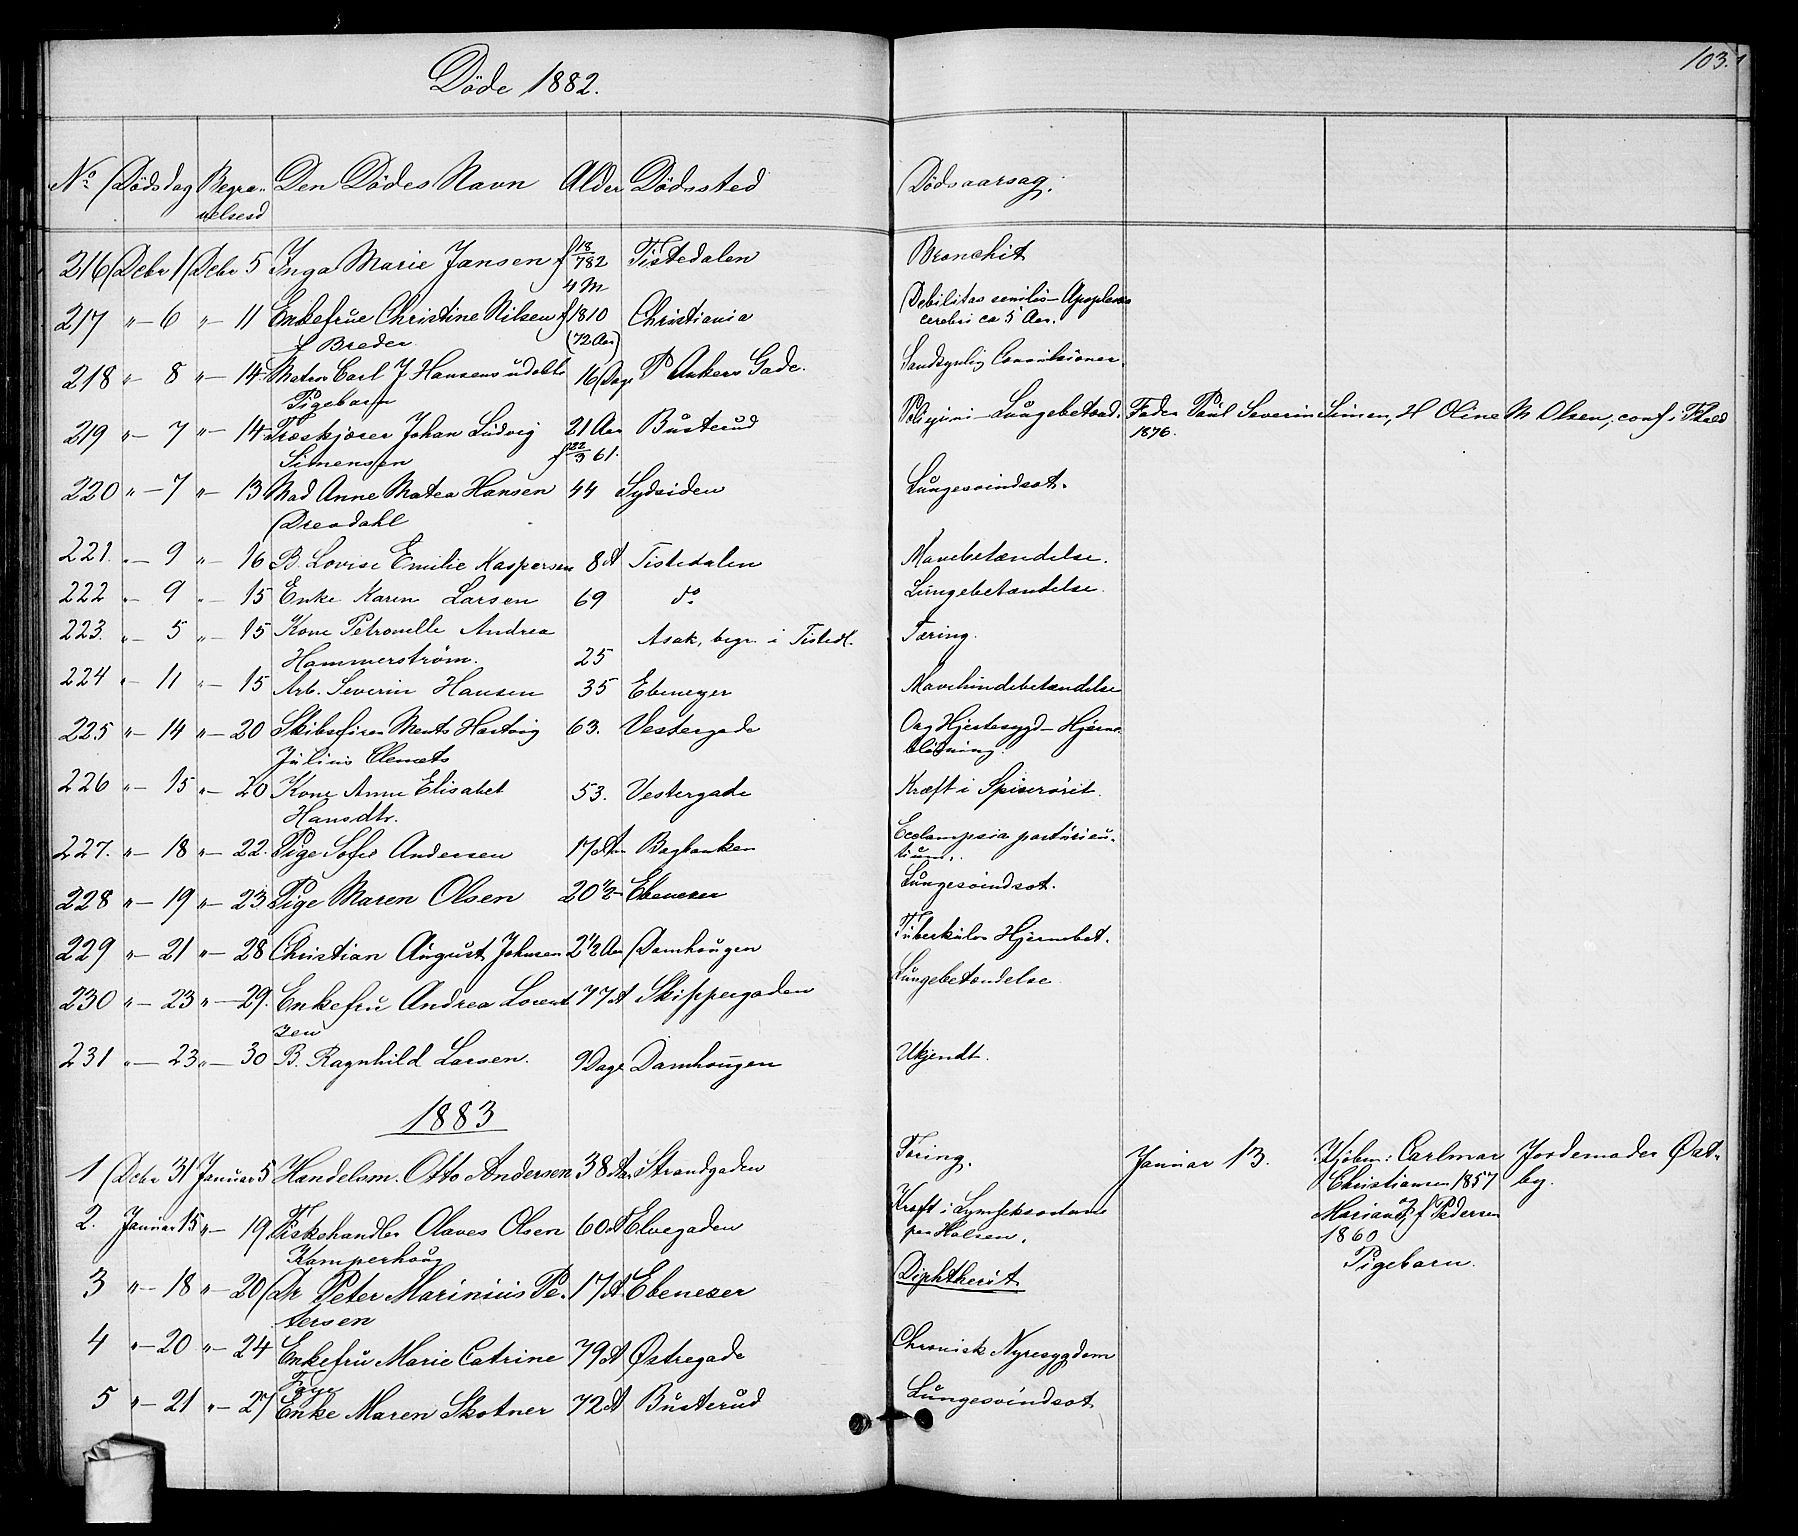 103.
Døde 1882.
No Dødsdag Begra- Den Dødes Navn Alder Dødssted Dødsaarsag.
velsesd
216 Decbr 1 Decbr 5 Inga Marie Jansen f 18/7 82 Tistedalen Bronchit
4 M
217 "— 6 "— 11 Enkefrue Christine Nilsen f 1810 Christiania Debilitas senilis — Apoplexia
f Breder (72 Aar) cerebri ca 5 Aar.
218 "— 8 "— 14 Matros Carl J Hansens udøbte 16 Dage P Ankers Gade. Sandsynlig Convulsioner.
Pigebarn
219 "— 7 "— 14 Træskjærer Johan Ludvig 21 Aar Busterud Lungebetænd. Fader Paul Severin Simen, H Oline M Olsen, conf i
Simensen f 22/3 61. 1876.
220 "— 7 "— 13 Mad Anne Matea Hansen 44 Sydsiden Lungesvindsot.
221. "— 9 "— 16 B. Lovise Emilie Kaspersen 8 A Tistedalen Mavebetændelse.
222 "— 9 "— 15 Enke Karen Larsen 69 do Lungebetændelse.
223. "— 5 "— 15 Kone Petronelle Andrea Asak, begr. i Tistedl. Tæring.
Hammerstrøm. 25
224 "— 11 "— 15 Arb. Severin Hansen 35 Ebenezer Mavehindebetændelse
225 "— 14 "— 20 Skibsfører Ments Hartvig 63. Vestergade Org Hjertesygd — Hjerne
Julius blødning.
226 "— 15 "— 20 Kone Anne Elisabet 53. Vestergade Kræft i Spiserørit.
Hansdtr.
227. "— 18 "— 22. Pige Sofie Andersen 17 Aar Bagbanken Ecclampsia parturien-
tium.
228 "— 19 "— 23 Pige Maren Olsen 20 1/2 — Ebeneser Lungesvindsot.
229 "— 21 "— 28 Christian August Johnsen 2 1/2 Aar Damhougen Tuberkuløs Hjernebet.
230 "— 23 "— 29. Enkefru Andrea Lorent 77 A Skippergaden Lungebetændelse
zen
231 "— 23 "— 30 B. Ragnhild Larsen. 9 Dage Damhougen Ukjendt.
1883
1 Decbr 31 Januar 5 Handelsm. Otto Andersen 38 Aar Strandgaden Tæring. Januar 13. Kjøbm: Carlmar Jordemoder Øst-
Christiansen 1857 by.
2. Januar 15 "— 19 Fiskehandler Olaves Olsen 60 A Elvegaden Kræft i Lymfekjertlerne Mariane f Pedersen
Kamperhoug paa Halsen. 1860
Pigebarn.
3 "— 18 "— 20 Dr Peter Marinius Pe- 17 A Ebeneser Diphtherit
tersen
4 "— 20 "— 24 Enkefru Marie Catrine 79 A Østregade Chronisk Nyresygdom
Faye
5 "— 21 "— 27 Enke Maren Skotner 72 A Busterud Lungesvindsot